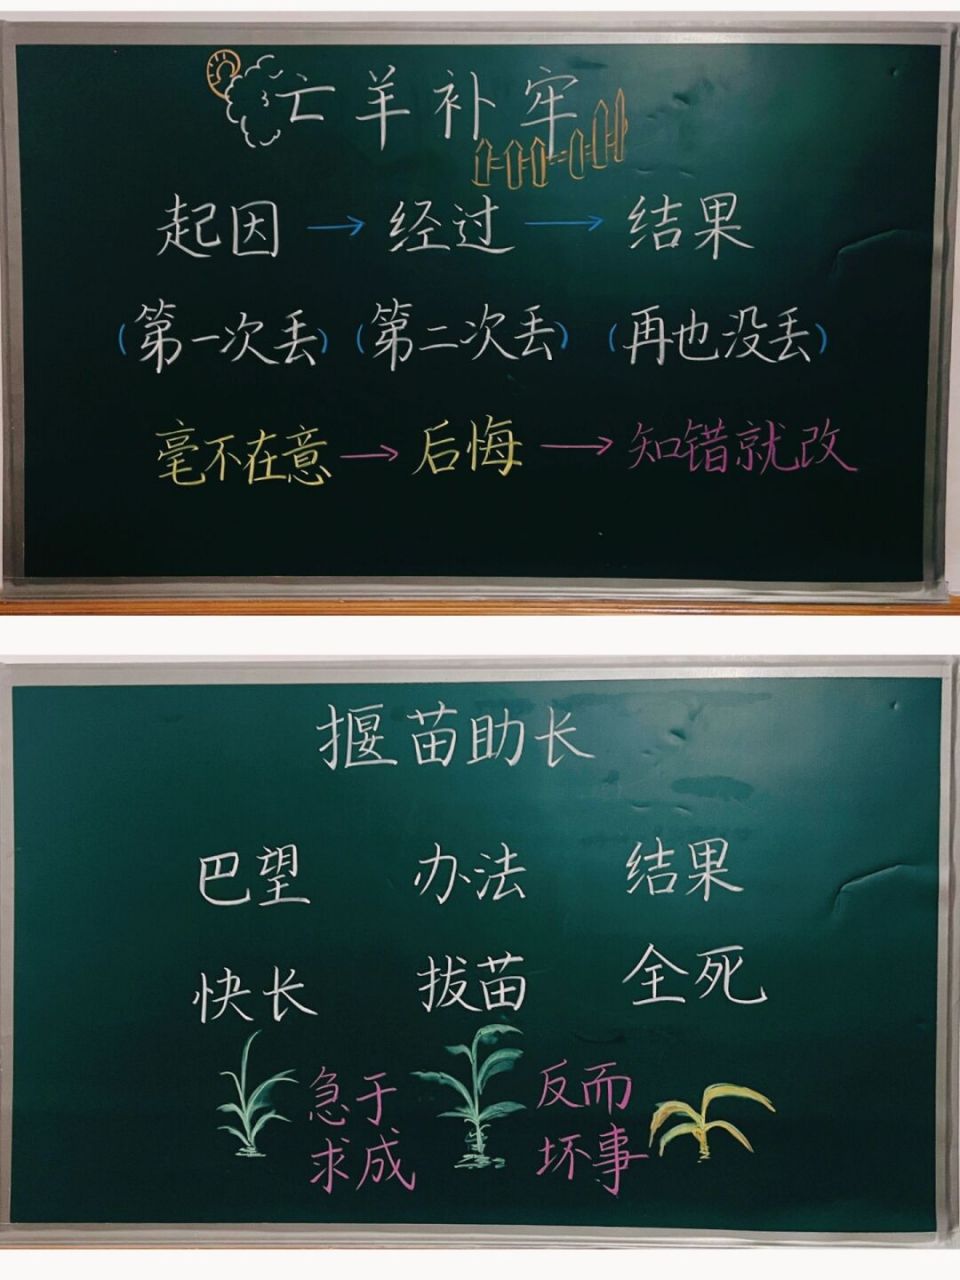 亡羊补牢
起因→经过→结果
(第一次丢)(第二次丢)(再也没丢)
毫不在意→后悔→知错就改
揠苗助长
巴望 办法 结果
快长 拔苗 全死
急于 反而
求成 坏事